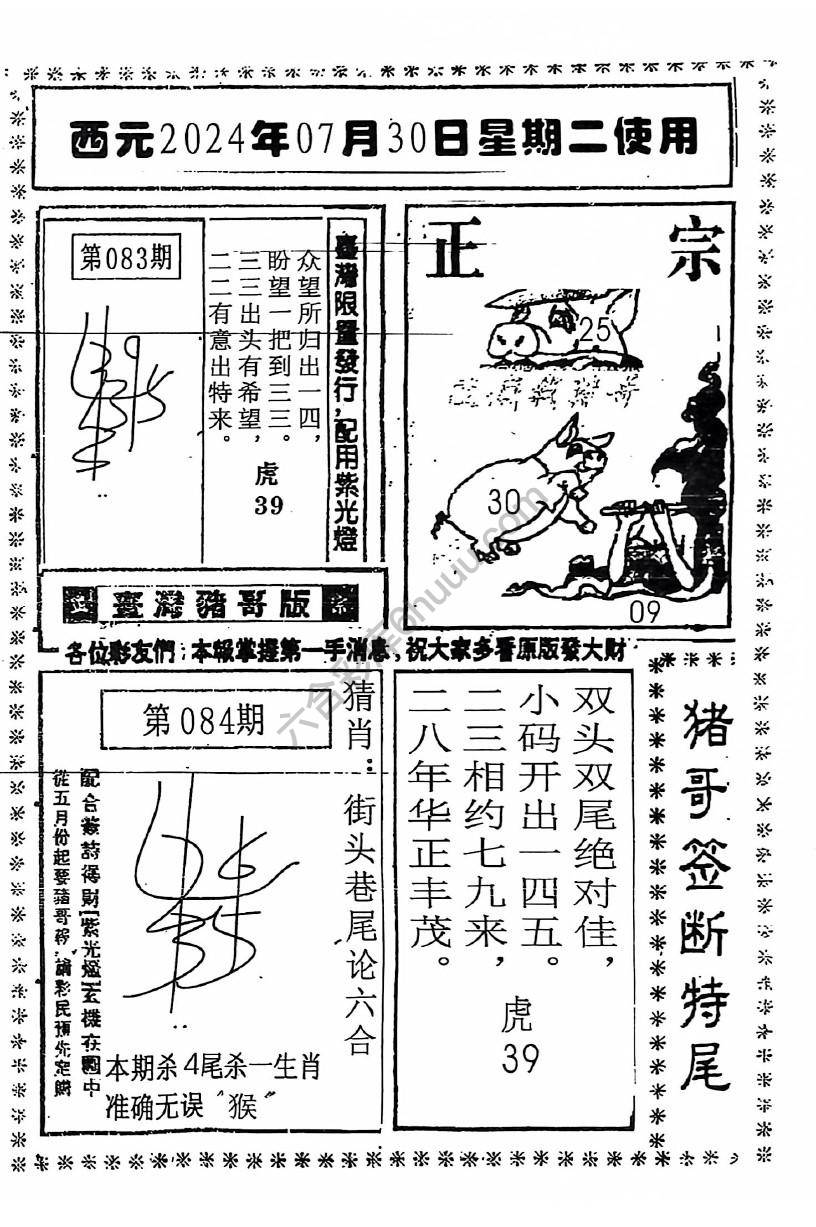 西元2024年07月30日星期二使用
第083期
众望所归出一四,
盼望一把到三三。
三三出头有希望,
二二有意出特来。
虎
39
臺灣限量發行,配用紫光燈
正宗
25
30
09
臺灣豬哥版
各位彩友們:本報掌握第一手消息,祝大家多看原版發大財
第084期
猜肖:街头巷尾论六合
配合簽詩得財[紫光燈]玄機在圖中
從五月份起要豬哥報,請彩民預先定購
本期杀4尾杀一生肖
准确无误“猴”
双头双尾绝对佳,
小码开出一四五。
二三相约七九来,
二八年华正丰茂。
虎
39
猪哥签断特尾
六合彩库6huuu.com